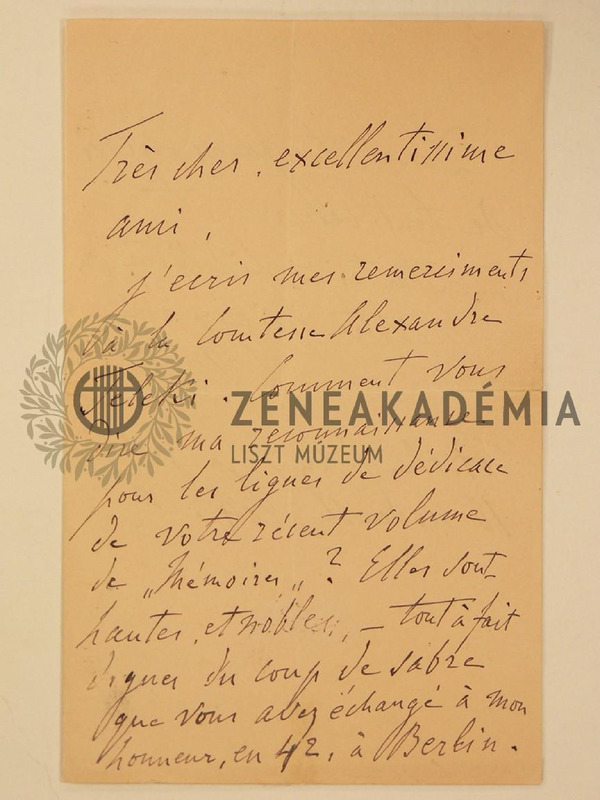 Très cher, excellentissime
ami,
j'ecris mes remerciments
à la Comtesse Alexandre
Teleki. Comment vous
dire ma reconnaissance
pour les lignes de dédicace
de votre récent volume
de „Mémoires„? Elles sont
hautes, et nobles, – tout à fait
dignes du coup de sabre
que vous avez échangé à mon
honneur, en 42, à Berlin.
ZENEAKADÉMIA
LISZT MÚZEUM